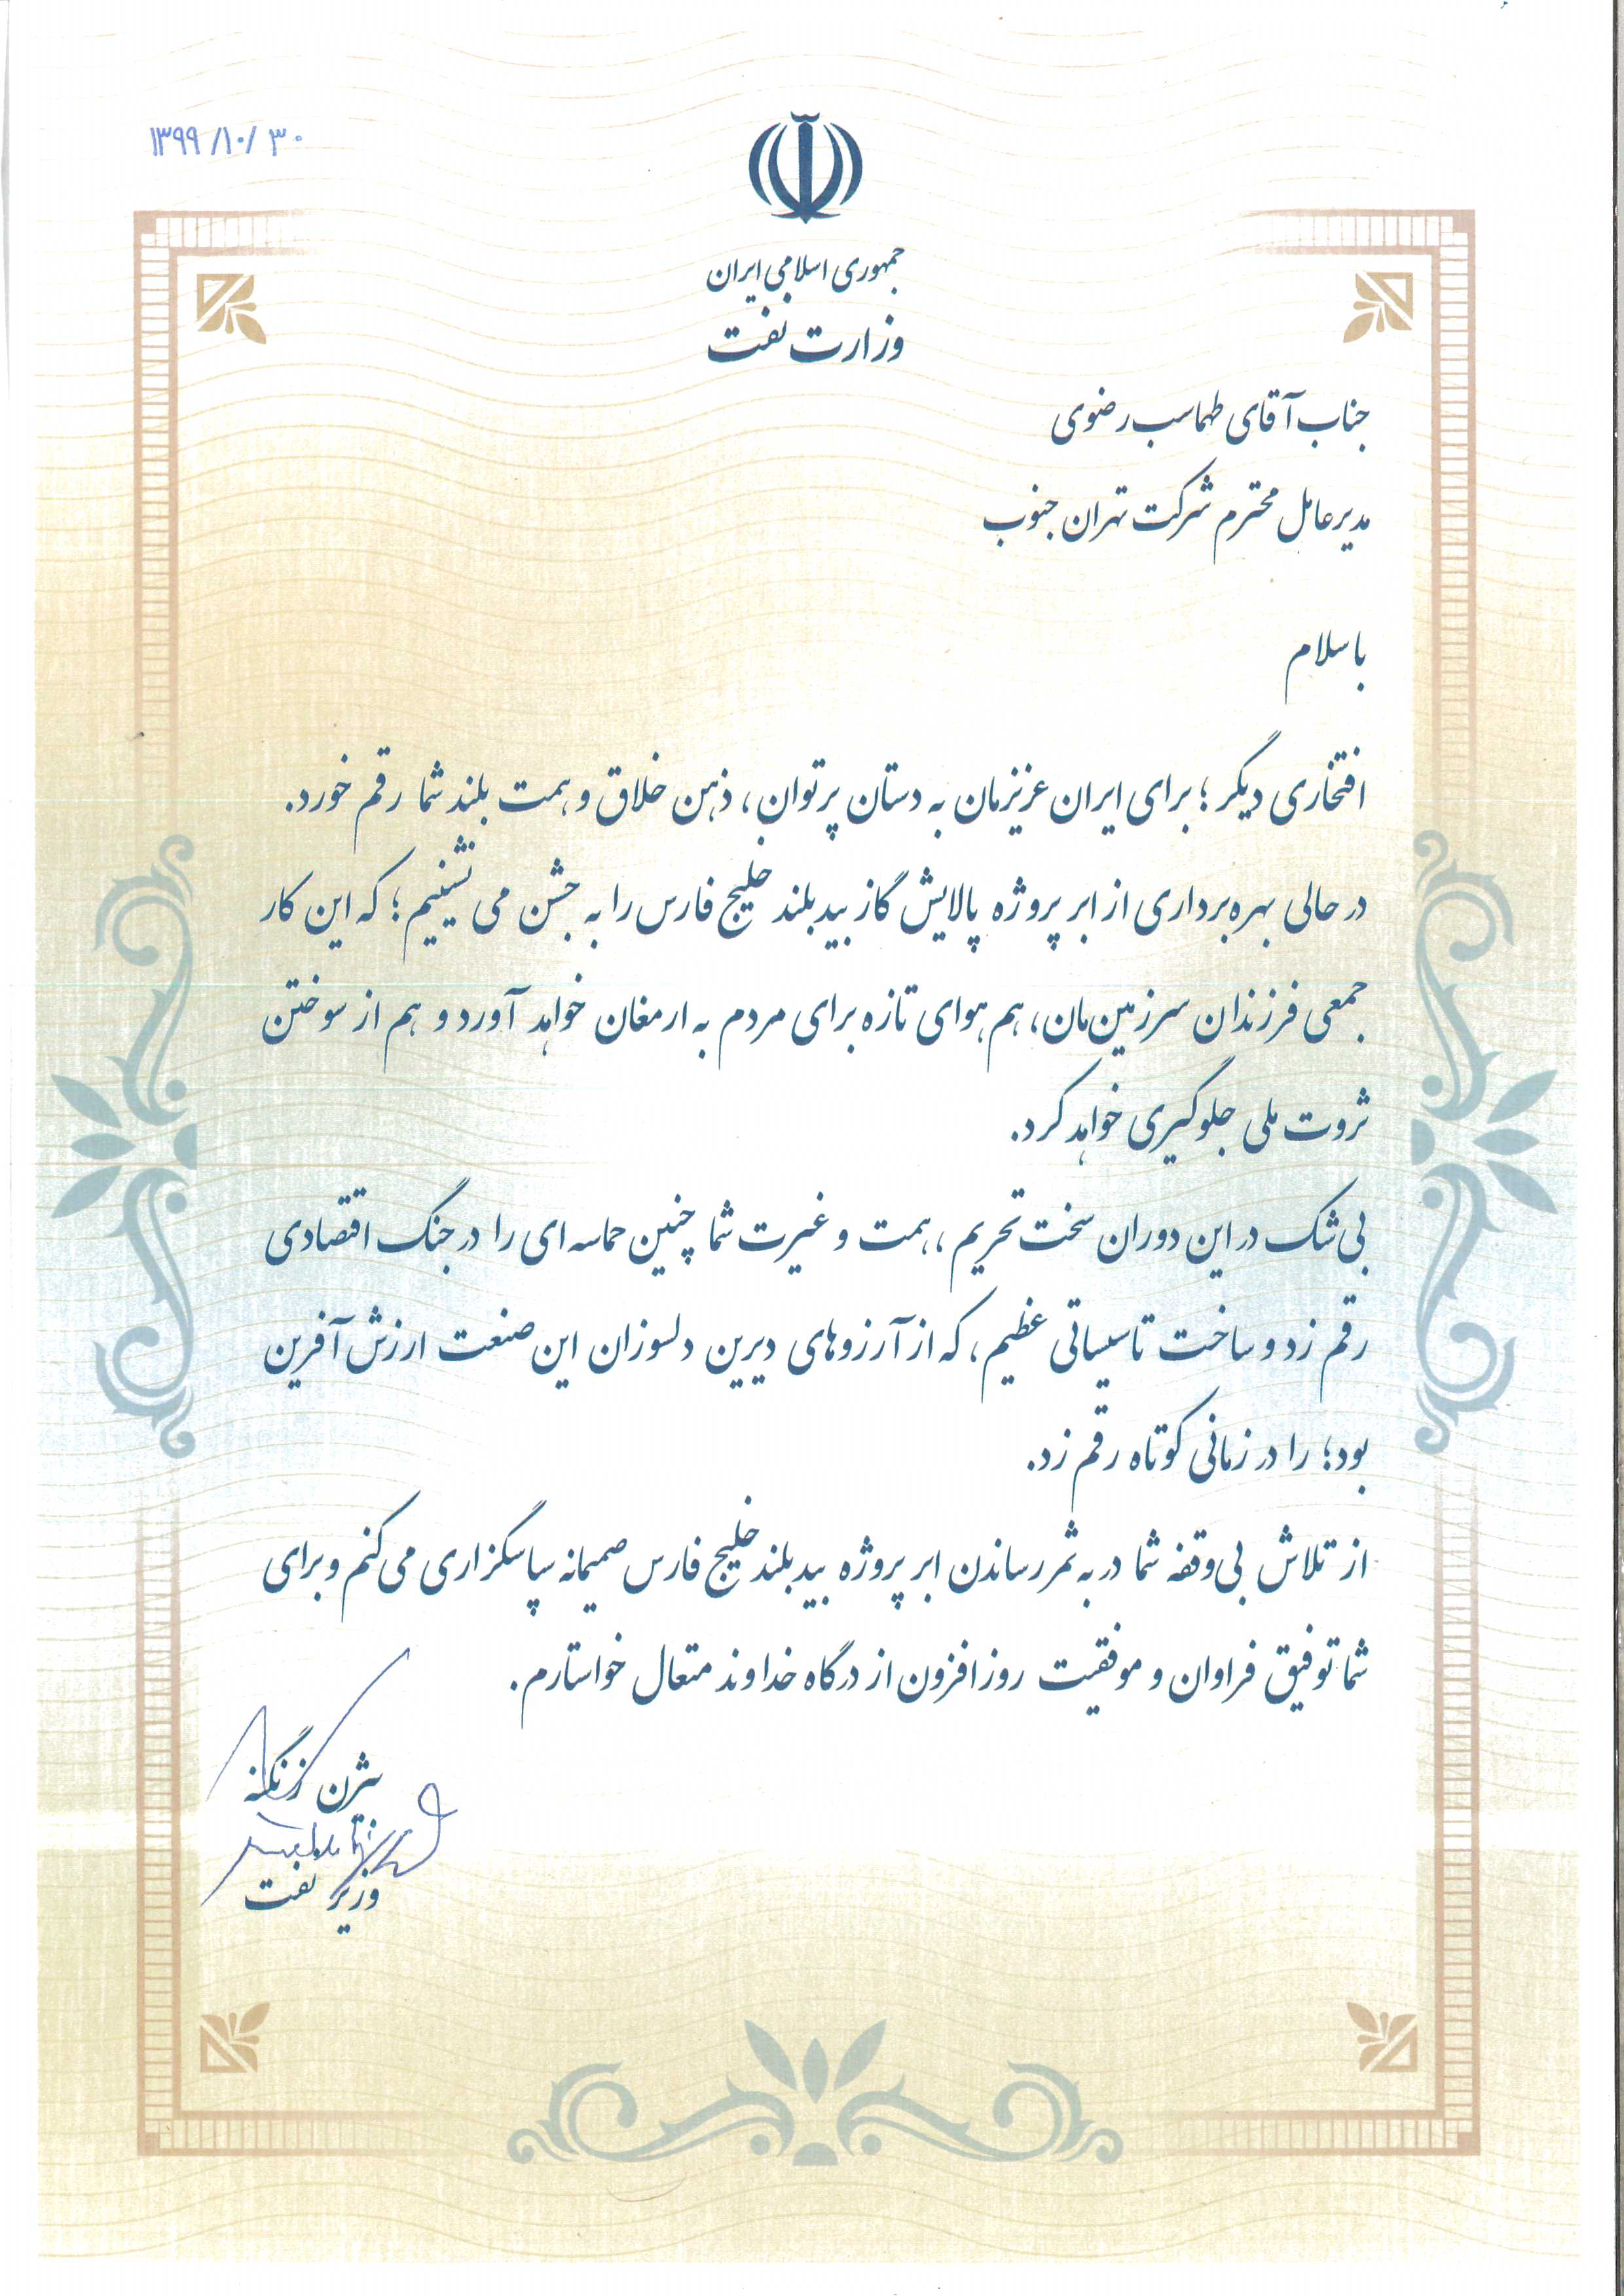 ۱۳۹۹/۱۰/۳۰
جمهوری اسلامی ایران
وزارت نفت
جناب آقای طهماسب رضوی
مدیرعامل محترم شرکت تهران جنوب
باسلام
افتخاری دیگر؛ برای ایران عزیزمان به دستان پرتوان، ذهن خلاق و همت بلند شما رقم خورد.
در حالی بهره‌برداری از ابر پروژه پالایش گاز بیدبلند خلیج فارس را به جشن می نشینیم؛ که این کار
جمعی فرزندان سرزمین‌مان، هم هوای تازه برای مردم به ارمغان خواهد آورد و هم از سوختن
ثروت ملی جلوگیری خواهد کرد.
بی‌شک در این دوران سخت تحریم، همت و غیرت شما چنین حماسه ای را در جنگ اقتصادی
رقم زد و ساخت تاسیساتی عظیم، که از آرزوهای دیرین دلسوزان این صنعت ارزش آفرین
بود؛ را در زمانی کوتاه رقم زد.
از تلاش بی‌وقفه شما در به ثمر رساندن ابر پروژه بیدبلند خلیج فارس صمیمانه سپاسگزاری می‌کنم و برای
شما توفیق فراوان و موفقیت روزافزون از درگاه خداوند متعال خواستارم.
بیژن زنگنه
وزیر نفت